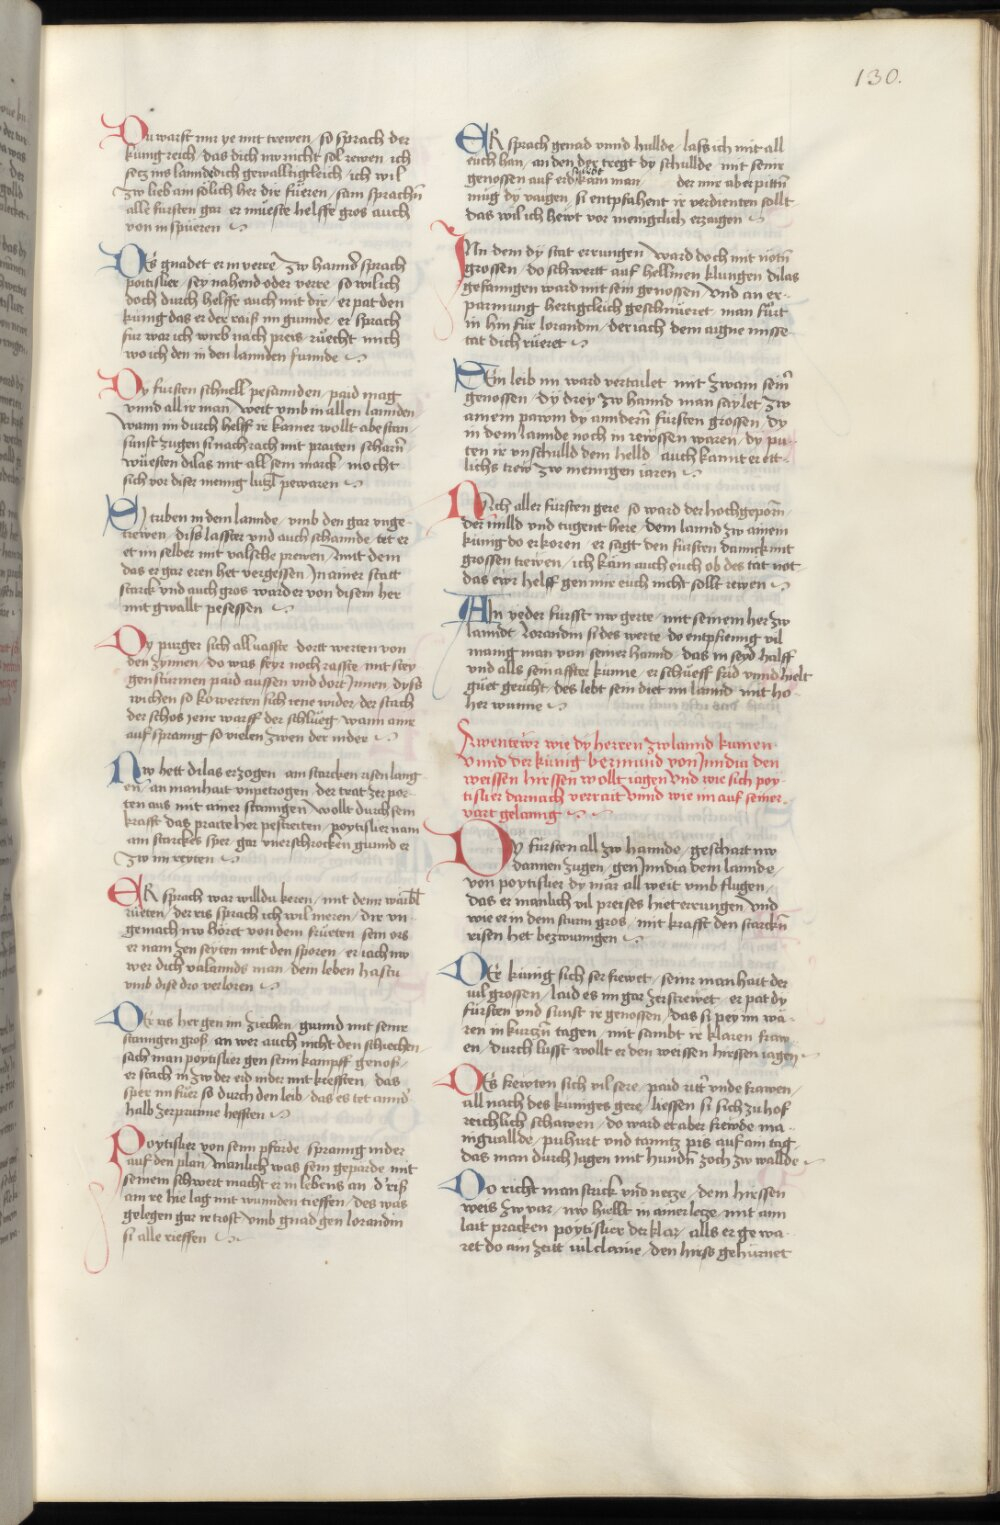 130.
Du warst mir ye mit trewen / so sprach der
kunig reich / das dich nw nicht sol rewen ich
setz ins lannde dich gewalltigkleich / ich wil
zw lieb am sölich her dir füeren / sam sprachñ
alle fursten gar er müeste helffe gros auch
von in spüeren
Des gnadet er in verre / zw hannd sprach
poitislier / sey nahend oder verre so wil ich
doch durch helffe auch mit dir / er pat den
kunig das er der raiß im gunnde / er sprach
fur war ich wirb nach preis / suecht mich
wo ich den in den lannden funnde
Dy fursten schnell pesannden / paid mag
vnnd all ir man / weit vmb in allen lannden
wann im durch helff ir kainer wollt abestan
sunst zugen si nach rach mit praiten scharñ
wüesten dilas mit all sein marck / mocht
sich vor diser menig lutzl pewaren
Sy triben in dem lannde / vmb den gar vnge-
trewen / diss lasster vnd auch schannde tet er
et im selber mit valsche prewen / mit dem
das er gar eren het vergessen / In ainer statt
starck vnd auch gros ward er von disem her
mit gwallt pesessen
Dy purger sich all vasste dortt werten von
den zynnen / do was feyr noch rasste mit stey
gen stürmen paid aussen vnd dort Innen / dyss
wichen so ko werten sich iene wider / der stach
der schos iene warff der schlueg / wann ainr
auf sprannig so vielen zwen der nider
Nw hett dilas erzogen ain starcken risen lang
en / an manhait vnpetrogen der trat zer por-
ten aus mit ainer stanngen / wollt durch sein
krafft das praite her pestreiten / poytislier nam
ain starckes sper gar vnerschrocken gunnd er
zw im reyten
ER sprach war willdu keren / mit deinr
rüeten / der ris sprach ich wil meren / dir vn
gemach nw höret von dem frueten sein ors
er nam zen seyten mit den sporen / er iach nw
wer dich valannds man / dem leben hastu
vmb dise dro verloren
Der ris her gen im ziechen / gunnd mit seinr
stanngen groß / an wer auch nicht den schiechen
sach man poytislier gen seim kampff genoß
er stach in zw der erd nider mit krefften das
sper im fuer so durch den leib / das es tet annd
halb zerprunne hefften
Poytislier von seim pfärde / sprannig nider
auf den plan / manlich was sein geparde mit
seinem schwert macht er in lebens an / d' riß
am re hie lag mit wunnden tieffen / des was
gelegen gar ir trost / vmb gnad gen lorandin
si alle rieffen
ER sprach genad vnnd hullde / lass ich mit all
euch han / an den der tregt dy schullde mit seinr
genossen auf erd kain man der mir aber pittñ
müg dy vaigen / si entpfahent ir verdienten sollt
das wil ich hewt vor menigclich erzaigen
INn dem dy stat errungen / ward doch mit nötñ
grossen / do schwertt auf hellmen klungen dilas
gefanngen ward mit sein genossen / vnd an er-
parmung hertigcleich geschnüeret man fürt
in hin für lorandin / der iach dem aigne misse
tat dich rüeret
Sein leib im ward vertailet mit zwain seinñ
genossen / dy drey zw hannd man saylet zw
ainem pawm dy anndern fürsten grossen / dy
in dem lannde noch in rewssen waren / dy pu-
ten ir vnschulld dem helld / auch kannt er ett-
lichs trew zw menigen iaren
Nach aller fürsten gere so ward der hochgeporñ
der milld vnd tugent here / dem lannd zw ainem
kunig do erkoren / er sagt den fürsten dannck mit
grossen trewen / ich kam auch euch ob des tat not
das ewr helff gen mir euch nicht sollt rewen
Ain yeder fursst nw gerte / mit seinem her zw
lanndt / Lorandin si des werte do entpfienng vil
manig man von seiner hannd / das in seyd halff
vnd alls sein affter künne / er schueff frid vnnd hielt
güet gericht / des lebt sein diet im lannd mit ho-
her wunne
Awentewr wie dy herren zw lannd kumen
vnnd der kunig bermund von Inndia den
weissen hirssen wollt iagen vnd wie sich poy-
tislier darnach verrait vnnd wie im auf seiner
vart gelanng
Dy fürsten all zw hannde / geschart nw
dannen zugen / gen Inndia dem lannde
von poytislier dy mär all weit vmb flugen
das er manlich vil preises hiet errungen vnd
wie er in dem sturm gros / mit krafft den starckñ
risen het bezwunngen
Der kunig sich ser frewet / seinr manhait der
vil grossen / laid es im gar zerstrewet er pat dy
fürsten vnd sunst ir genossen / das si pey im wä-
ren in kurtzñ tagen / mit sambt ir klaren fraw
en / durch lusst wollt er den weissen hirssen iagen
Des frewten sich vil sere / paid ritt' vnde frawen
all nach des kuniges gere / liessen si sich zu hof
reichlich schawen / do ward et aber frewde ma-
nigualde / puhurt vnd tanntz pis auf ain tag
das man durch Jagen mit hundñ zoch zw wallde
Do richt man strick vnd netze / dem hirssen
weis zw var / nw hiellt in ainer letze mit ain
lait pracken poytislier der klar / alls er ge wa-
ret do ain zeitt vil claine / den hirss gehürnet